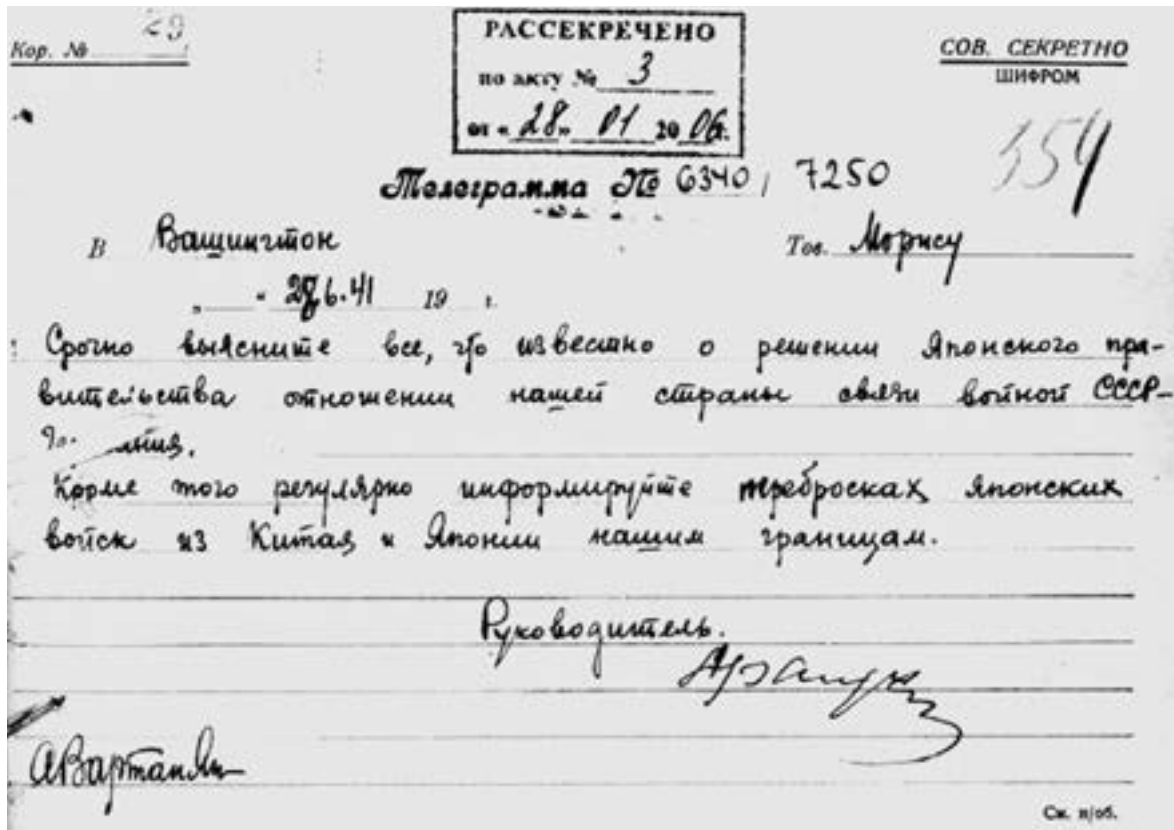 Кор. № 29
РАССЕКРЕЧЕНО
по акту № 3
от «28» 01 2006г.
СОВ. СЕКРЕТНО
ШИФРОМ
354
Телеграмма № 6340, 7250
В Вашингтон
Тов. Морису
" " 28.6.41 19 г.
Срочно выясните все, что известно о решении Японского пра-
вительства отношении нашей страны связи войной СССР-
Корме того регулярно информируйте перебросках японских
войск из Китая и Японии нашим границам.
Руководитель.
АВартанян
См. н/об.